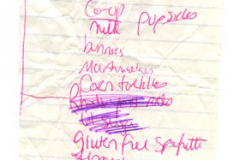 Co-op
milk popsicles
bunnies
Marshmallows
Corn tortillas
gluten free spaghetti